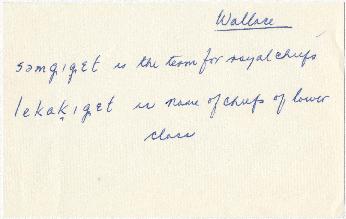 Wallace
səmg̣ig̣et is the term for royal chiefs
lekaḳig̣et is name of chiefs of lower
class